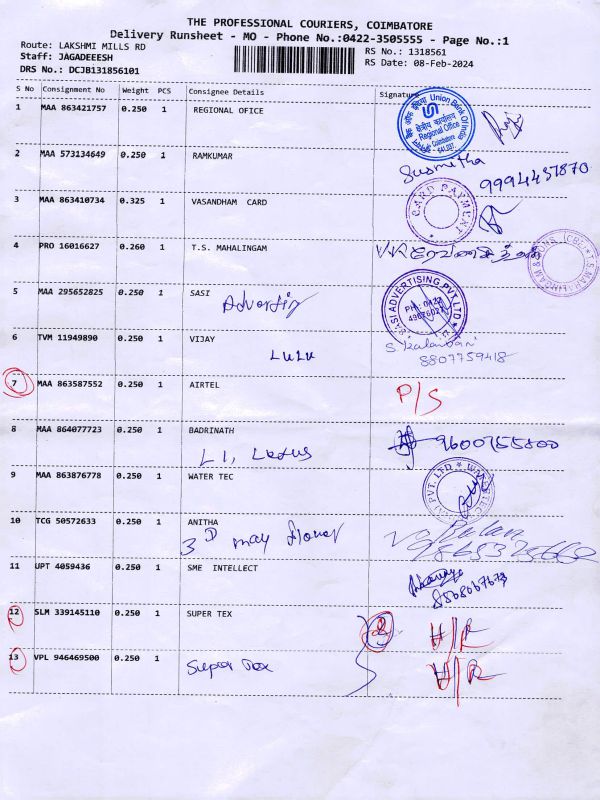 THE PROFESSIONAL COURIERS, COIMBATORE
Delivery Runsheet - MO - Phone No.:0422-3505555 - Page No.:1
Route: LAKSHMI MILLS RD
RS No.: 1318561
Staff: JAGADEEESH
RS Date: 08-Feb-2024
DRS No.: DCJB131856101
S No Consignment No Weight PCS Consignee Details Signature
1 MAA 863421757 0.250 1 REGIONAL OFICE
Union Bank Of India
Regional Office
2 MAA 573134649 0.250 1 RAMKUMAR
Susmitha
9994437870
3 MAA 863410734 0.325 1 VASANDHAM CARD
CARD PAYMENT
4 PRO 16016627 0.260 1 T.S. MAHALINGAM
5 MAA 295652825 0.250 1 SASI
Advertising
SASI ADVERTISING PVT. LTD
PH: 0422
6 TVM 11949890 0.250 1 VIJAY
LULU
S Kalaivani
8807759418
7 MAA 863587552 0.250 1 AIRTEL
P/S
8 MAA 864077723 0.250 1 BADRINATH
L1, Lotus
9600755800
9 MAA 863876778 0.250 1 WATER TEC
PVT. LTD
10 TCG 50572633 0.250 1 ANITHA
3 D may flower
11 UPT 4059436 0.250 1 SME INTELLECT
12 SLM 339145110 0.250 1 SUPER TEX
13 VPL 946469500 0.250 1
Super Tex